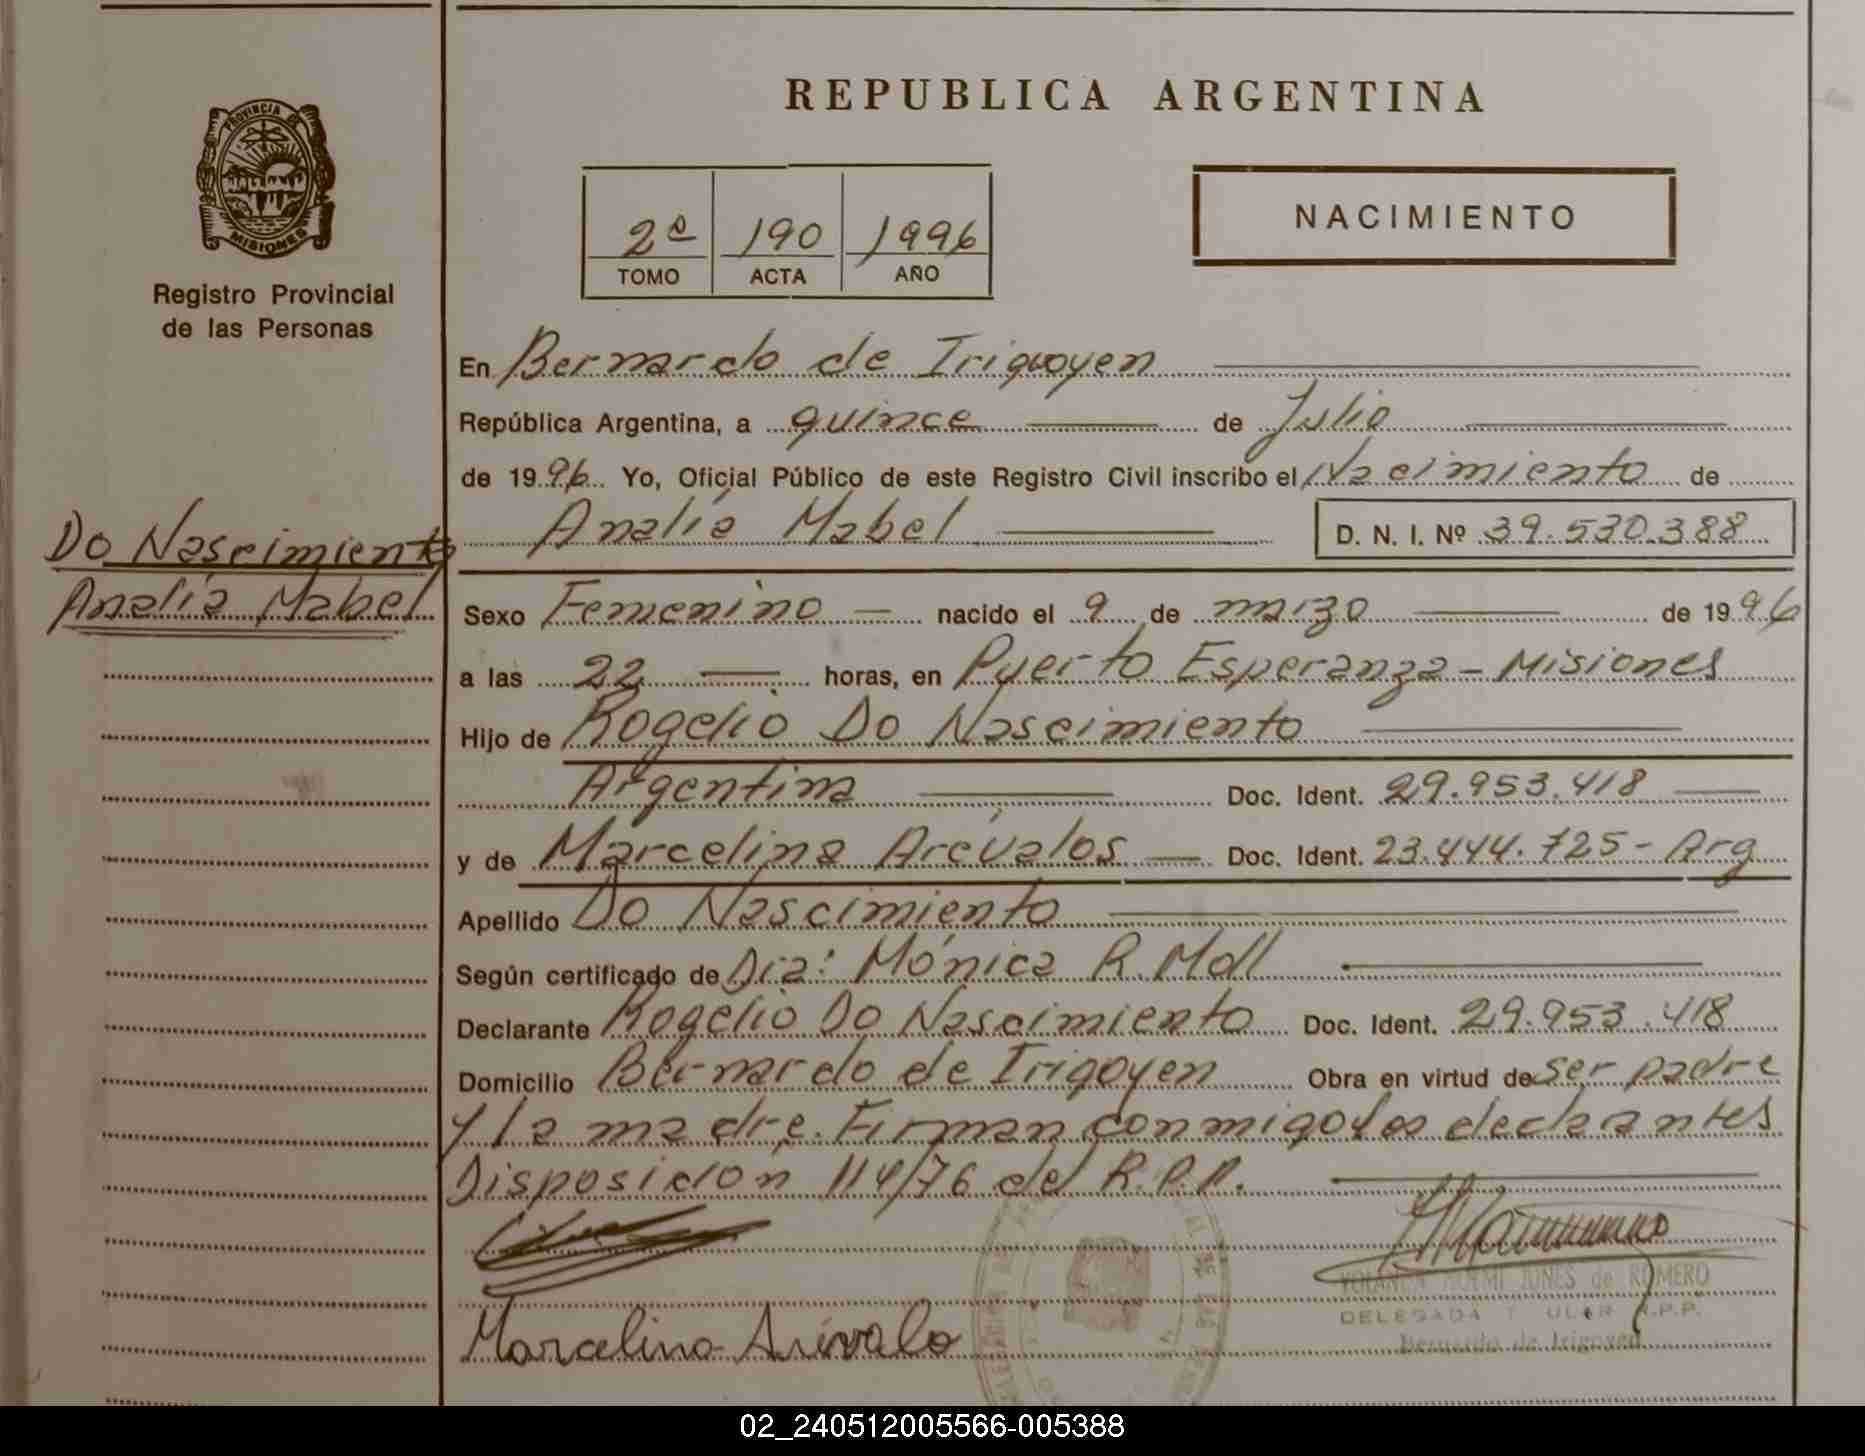 REPUBLICA ARGENTINA
PROVINCIA DE
MISIONES
Registro Provincial
de las Personas
2º 190 1996
TOMO ACTA AÑO
NACIMIENTO
En Bernardo de Irigoyen
República Argentina, a quince de Julio
de 1996 Yo, Oficial Público de este Registro Civil inscribo el Nacimiento de
Analía Mabel D. N. I. Nº 39.530.388
Do Nascimiento
Analía Mabel
Sexo Femenino nacido el 9 de marzo de 1996
a las 22 horas, en Puerto Esperanza - Misiones
Hijo de Rogelio Do Nascimiento
Argentina Doc. Ident. 29.953.418
y de Marcelina Arévalos Doc. Ident. 23.444.725 - Arg
Apellido Do Nascimiento
Según certificado de Dra: Mónica R. Moll
Declarante Rogelio Do Nascimiento Doc. Ident. 29.953.418
Domicilio Bernardo de Irigoyen Obra en virtud de ser padre
y la madre. Firman conmigo los declarantes
Disposición 114/76 del R.P.P.
YOLANDA NOEMI JUNES de ROMERO
DELEGADA TITULAR R.P.P.
Bernardo de Irigoyen
Marcelina Arévalo
02_240512005566-005388